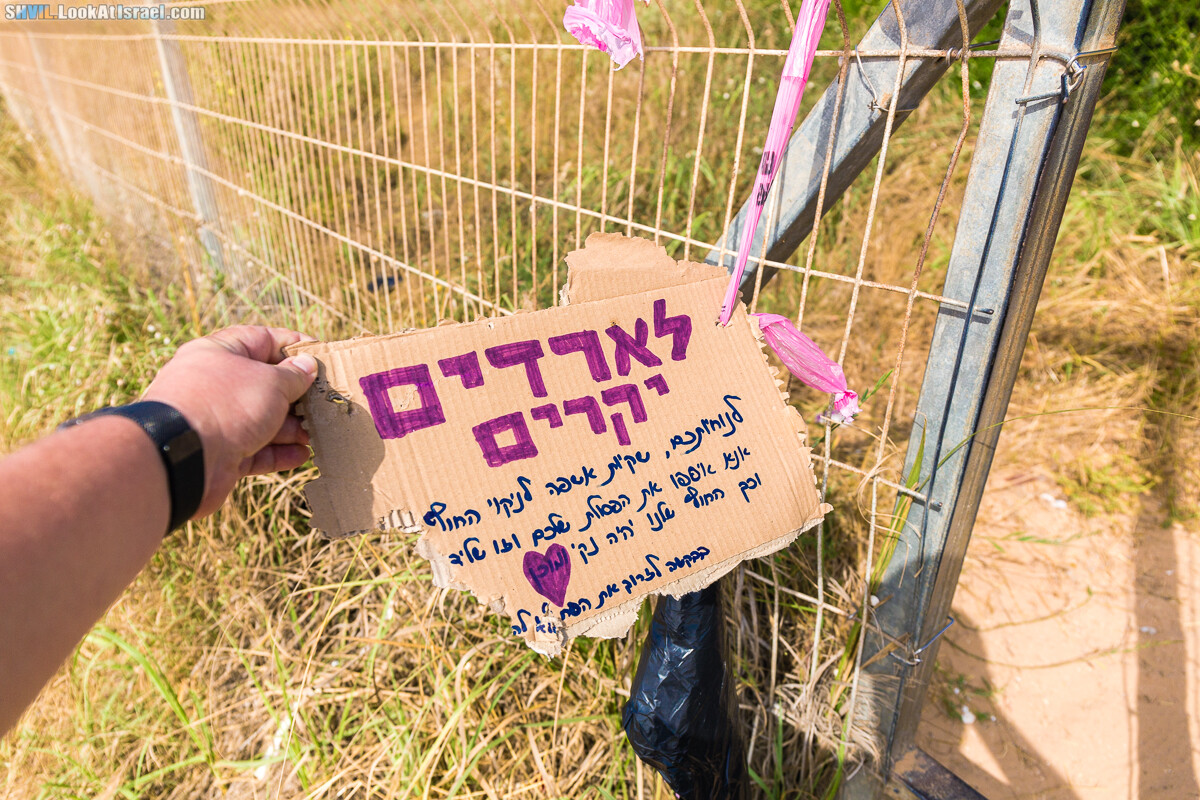 SHVIL.LookAtIsrael.com
לארדים
יקרים
לנוחיותכם, שקיות אשפה לניקוי החוף
אנא איספו את הפסולת שלכם וזו שליד
וכך החוף שלנו יהיה נקי ומוכן
בבקשה לזרוק את הפח